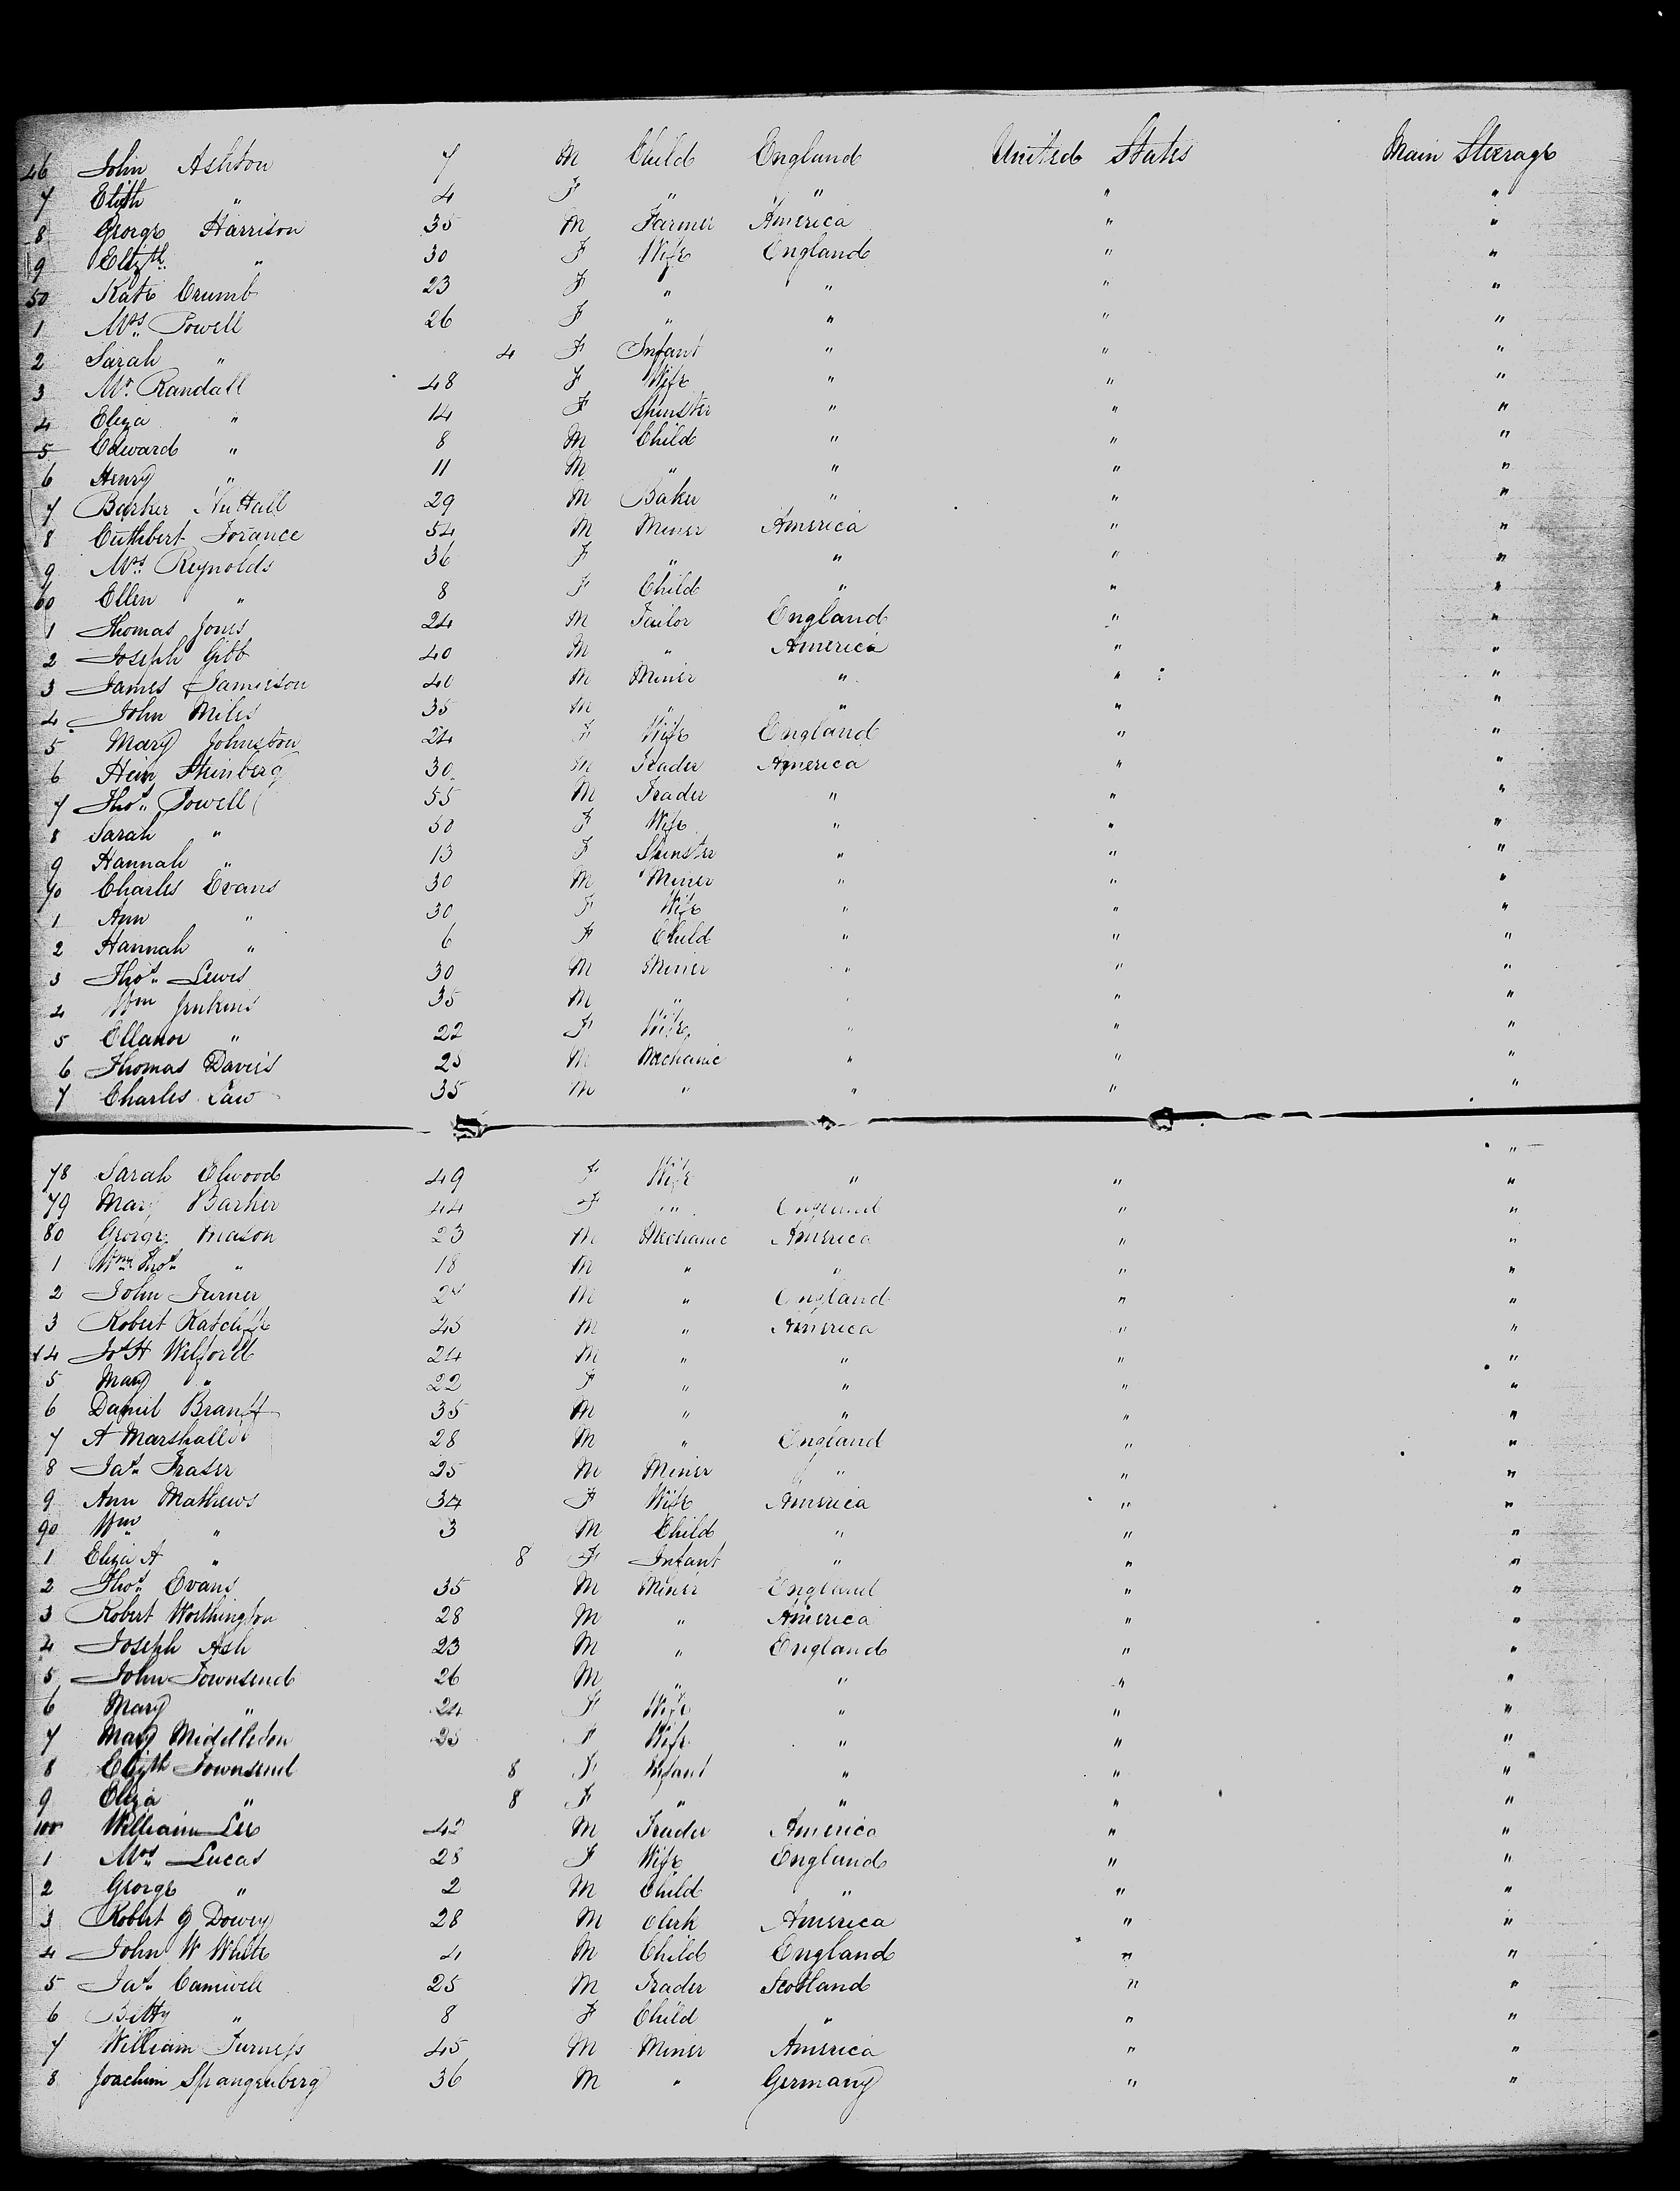 46 John Ashton 7 M Child England United States Main Steerage
7 Elizth " 4 F " " " "
8 George Harrison 35 M Farmer America " "
9 Elizth " 30 F Wife England " "
50 Kate Crumb 23 F " " " "
1 Mrs Powell 26 F " " " "
2 Sarah " 4 F Infant " " "
3 Mr Randall 48 F Wife " " "
4 Eliza " 14 F Spinster " " "
5 Edward " 8 M Child " " "
6 Henry " 11 M " " " "
7 Barker Nuttall 29 M Baker " " "
8 Cuthbert Forance 54 M Miner America " "
9 Mrs Reynolds 36 F " " " "
60 Ellen " 8 F Child " " "
1 Thomas Jones 24 M Tailor England " "
2 Joseph Gibb 40 M " America " "
3 James Jamieson 40 M Miner " " "
4 John Miles 35 M " " " "
5 Mary Johnston 24 F Wife England " "
6 Hein Steinberg 30 M Trader America " "
7 Thos Powell 55 M Trader " " "
8 Sarah " 50 F Wife " " "
9 Hannah " 13 F Spinster " " "
70 Charles Evans 30 M Miner " " "
1 Ann " 30 F Wife " " "
2 Hannah " 6 F Child " " "
3 Thos Lewis 30 M Miner " " "
4 Wm Jenkins 35 M " " " "
5 Ellanor " 22 F Wife " " "
6 Thomas Davies 25 M Mechanic " " "
7 Charles Law 35 M " " " "
78 Sarah Elwood 49 F Wife " " "
79 Mary Barker 44 F " England " "
80 George Mason 23 M Mechanic America " "
1 Wm Thos " 18 M " " " "
2 John Turner M " England " "
3 Robert Ratcliffe 45 M " America " "
84 Jos H Welford 24 M " " " "
5 Mary " 22 F " " " "
6 Daniel 35 M " " " "
7 A Marshall 28 M " England " "
8 Jas Fraser 25 M Miner " " "
9 Ann Mathews 34 F Wife America " "
90 Wm " 3 M Child " " "
1 Eliza A " 8 F Infant " " "
2 Thos Evans 35 M Miner England " "
3 Robert Worthington 28 M " America " "
4 Joseph Ash 23 M " England " "
5 John Townsend 26 M " " " "
6 Mary " 24 F Wife " " "
7 Mary Middleton 25 F Wife " " "
8 Elizth Townsend 8 F Infant " " "
9 Eliza " 8 F " " " "
100 William Lee 42 M Trader America " "
1 Mrs Lucas 28 F Wife England " "
2 George " 2 M Child " " "
3 Robert G Dowey 28 M Clerk America " "
4 John W White 4 M Child England " "
5 Jas Camwell 25 M Trader Scotland " "
6 Betty " 8 F Child " " "
7 William Furness 45 M Miner America " "
8 Joachim Spangenberg 36 M " Germany " "